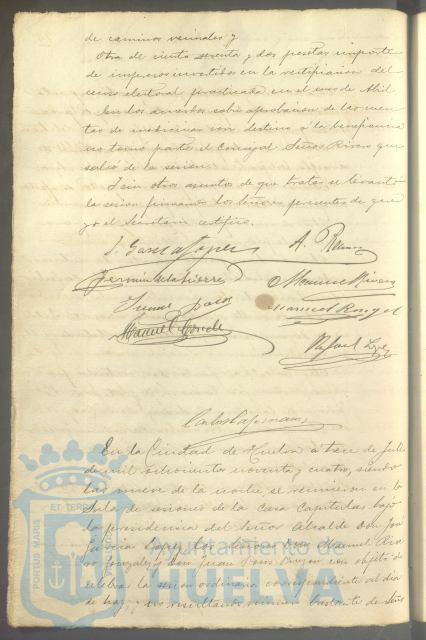 de caminos vecinales y
Otra de ciento setenta y dos pesetas importe
de impresos invertidos en la rectificacion del
censo electoral practicada en el mes de Abril
En los acuerdos sobre aprobacion de las cuen-
tas de medicinas con destino á la beneficencia
no tomó parte el Concejal Señor Rivero que
salió de la sesion.
Y sin otros asuntos de que tratar se levantó
la sesion firmando los señores presentes de que
yo el Secretario certifico.
J. Garcia Lopez
A.
Fermin de la Sierra
Manuel Rivero
Manuel Rangel
Manuel Conde
Rafael Lopez
Carlos
En la Ciudad de Huelva a trece de Julio
de mil ochocientos noventa y cuatro, siendo
las nueve de la noche se reunieron en la
Sala de sesiones de la Casa Capitular bajo
la presidencia del Señor Alcalde Don José
Garcia Lopez los Señores Don Manuel
Gonzalez y Don Juan con objeto de
celebrar la sesion ordinaria correspondiente al dia
de hoy; y no resultando numero bastante de Señores
PORTUS MARIS ET TERRE
Ayuntamiento de
HUELVA